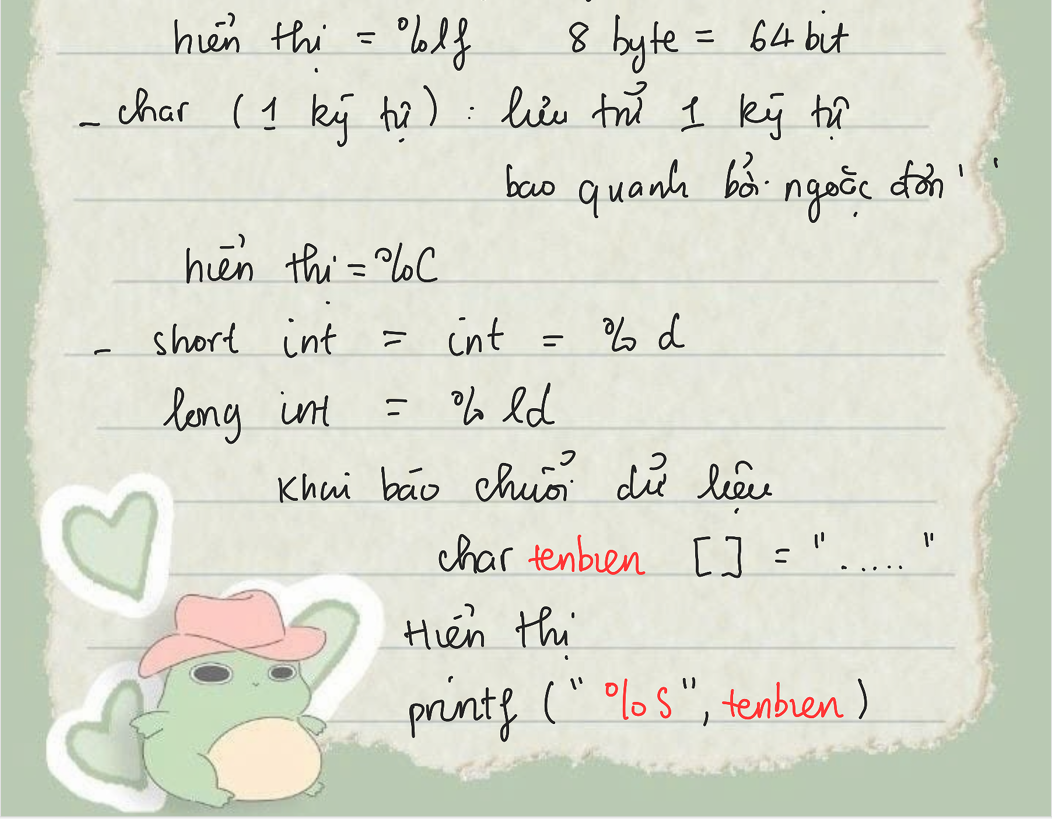 hiển thị = %lf 8 byte = 64 bit
- char (1 ký tự) : lưu trữ 1 ký tự
bao quanh bởi ngoặc đơn ' '
hiển thị = %c
- short int = int = % d
long int = % ld
Khai báo chuỗi dữ liệu
char tenbien [] = "....."
Hiển thị
printf ("%s", tenbien)